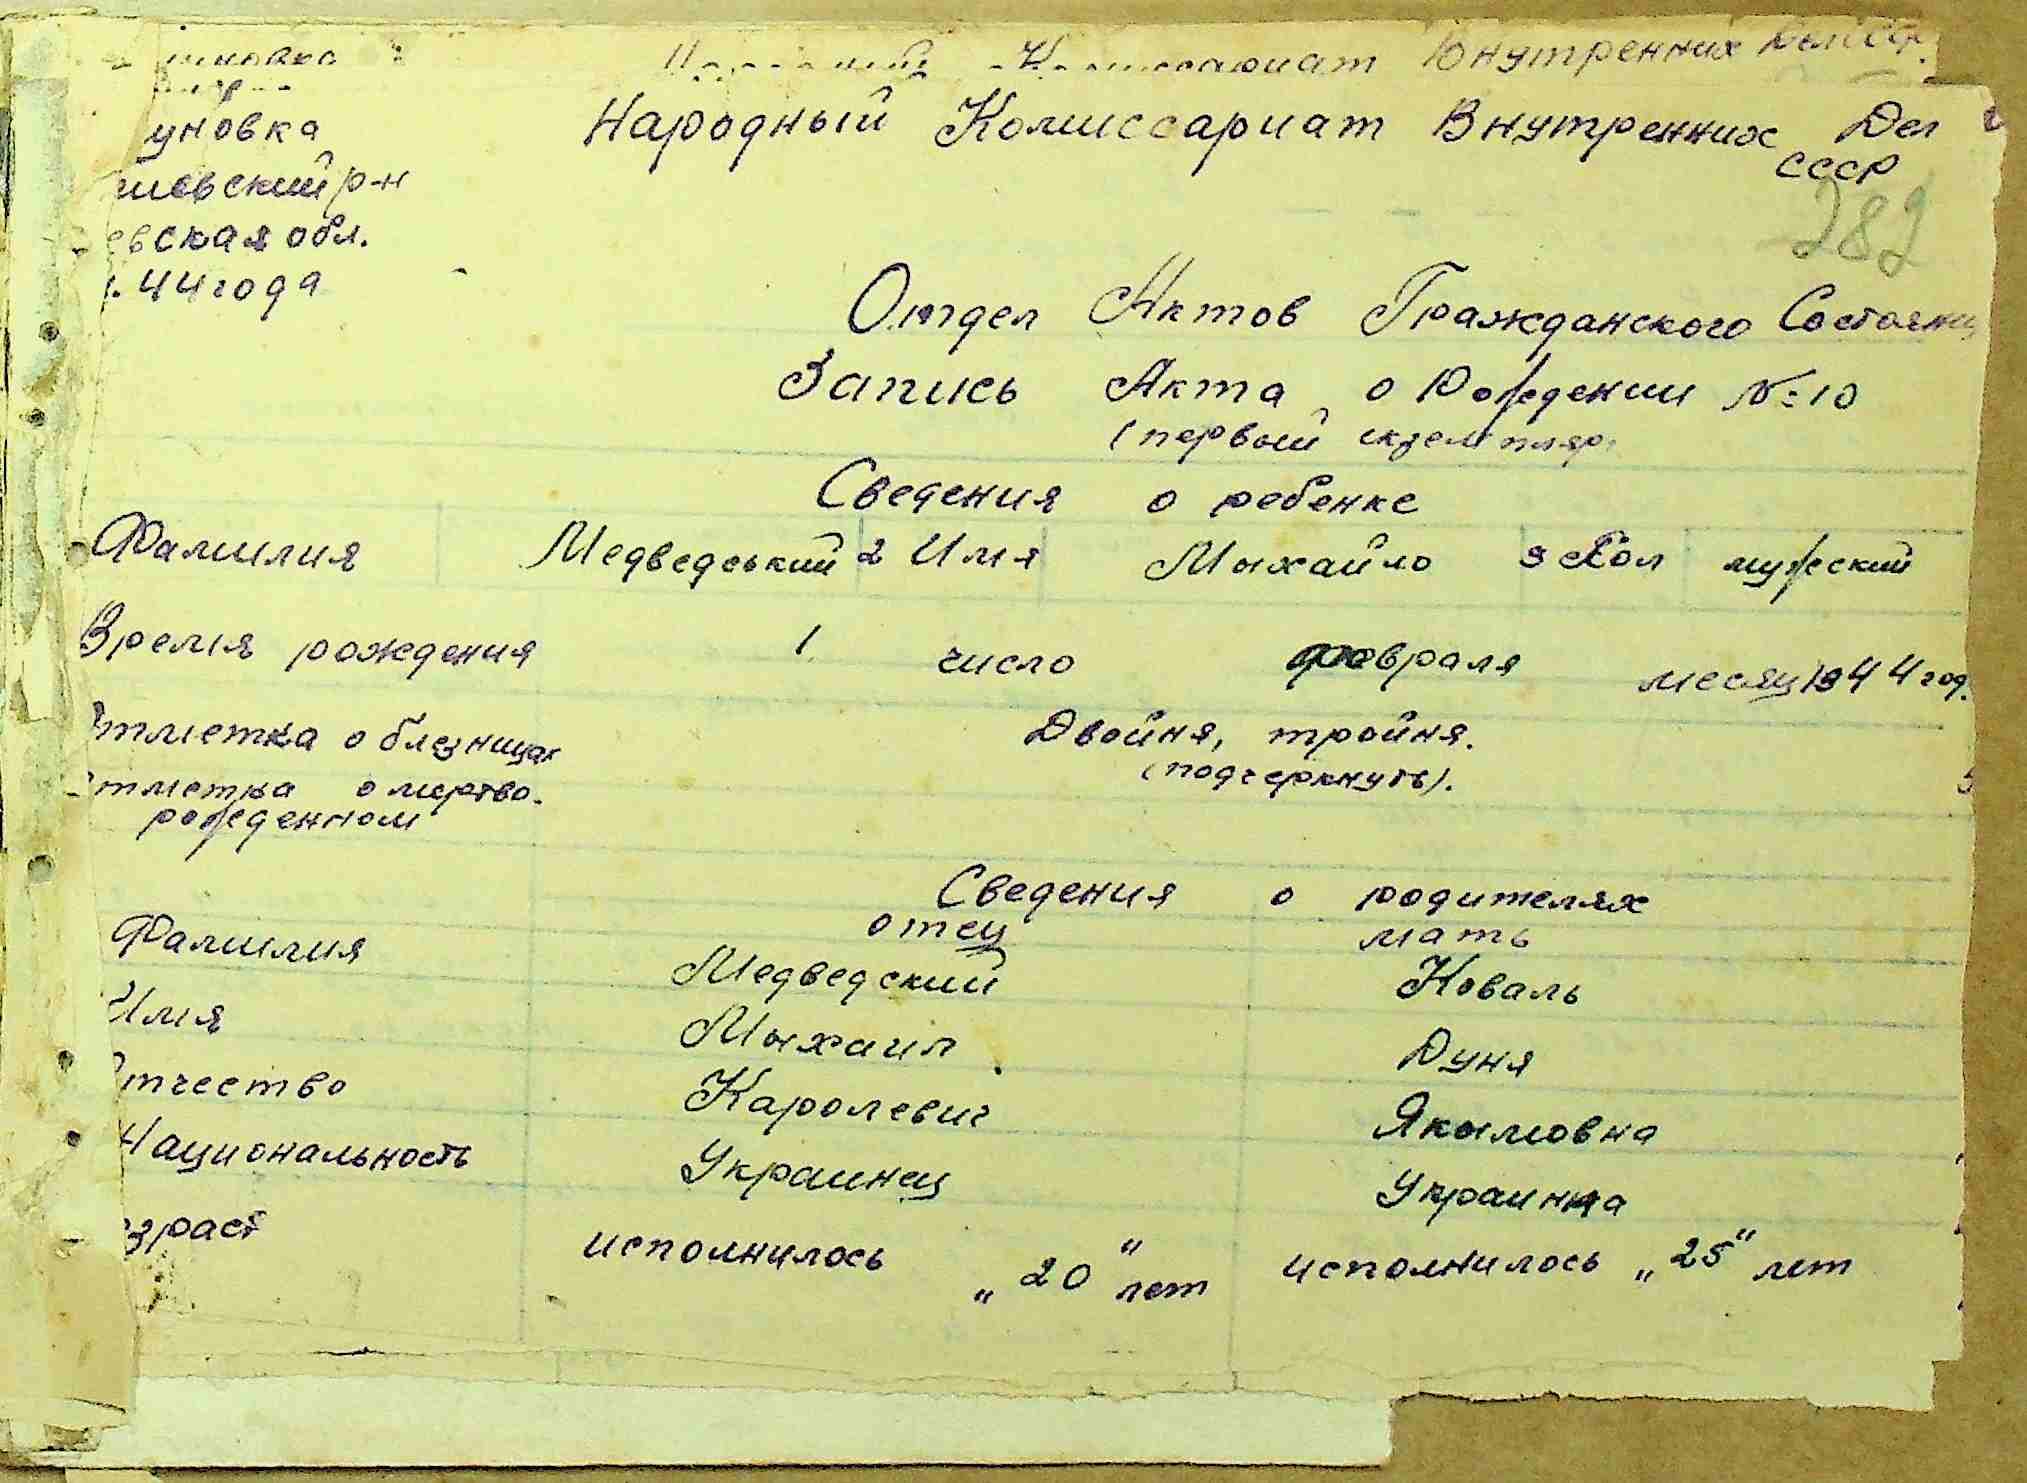 Внутренних
Народный Комиссариат Внутренних Дел
СССР
уновка
шевский р-н
евская обл.
44 года
282
Отдел Актов Гражданского Состояни
Запись Акта о Рождении №10
(первый екземпляр
Сведения о ребенке
Фамилия Медведський 2 Имя Мыхайло 3 Пол мужский
Время рождения 1 число февраля месяц 1944 год.
Отметка о блезницах Двойня, тройня.
(подчеркнуть).
Отметка о мертво-
рожденном
Сведения о родителях
отец мать
Фамилия Медведский Коваль
Имя Мыхаил Дуня
Отчество Каролевич Якымовна
Национальность Украинец Украинка
зраст исполнилось „20" лет исполнилось „25" лет